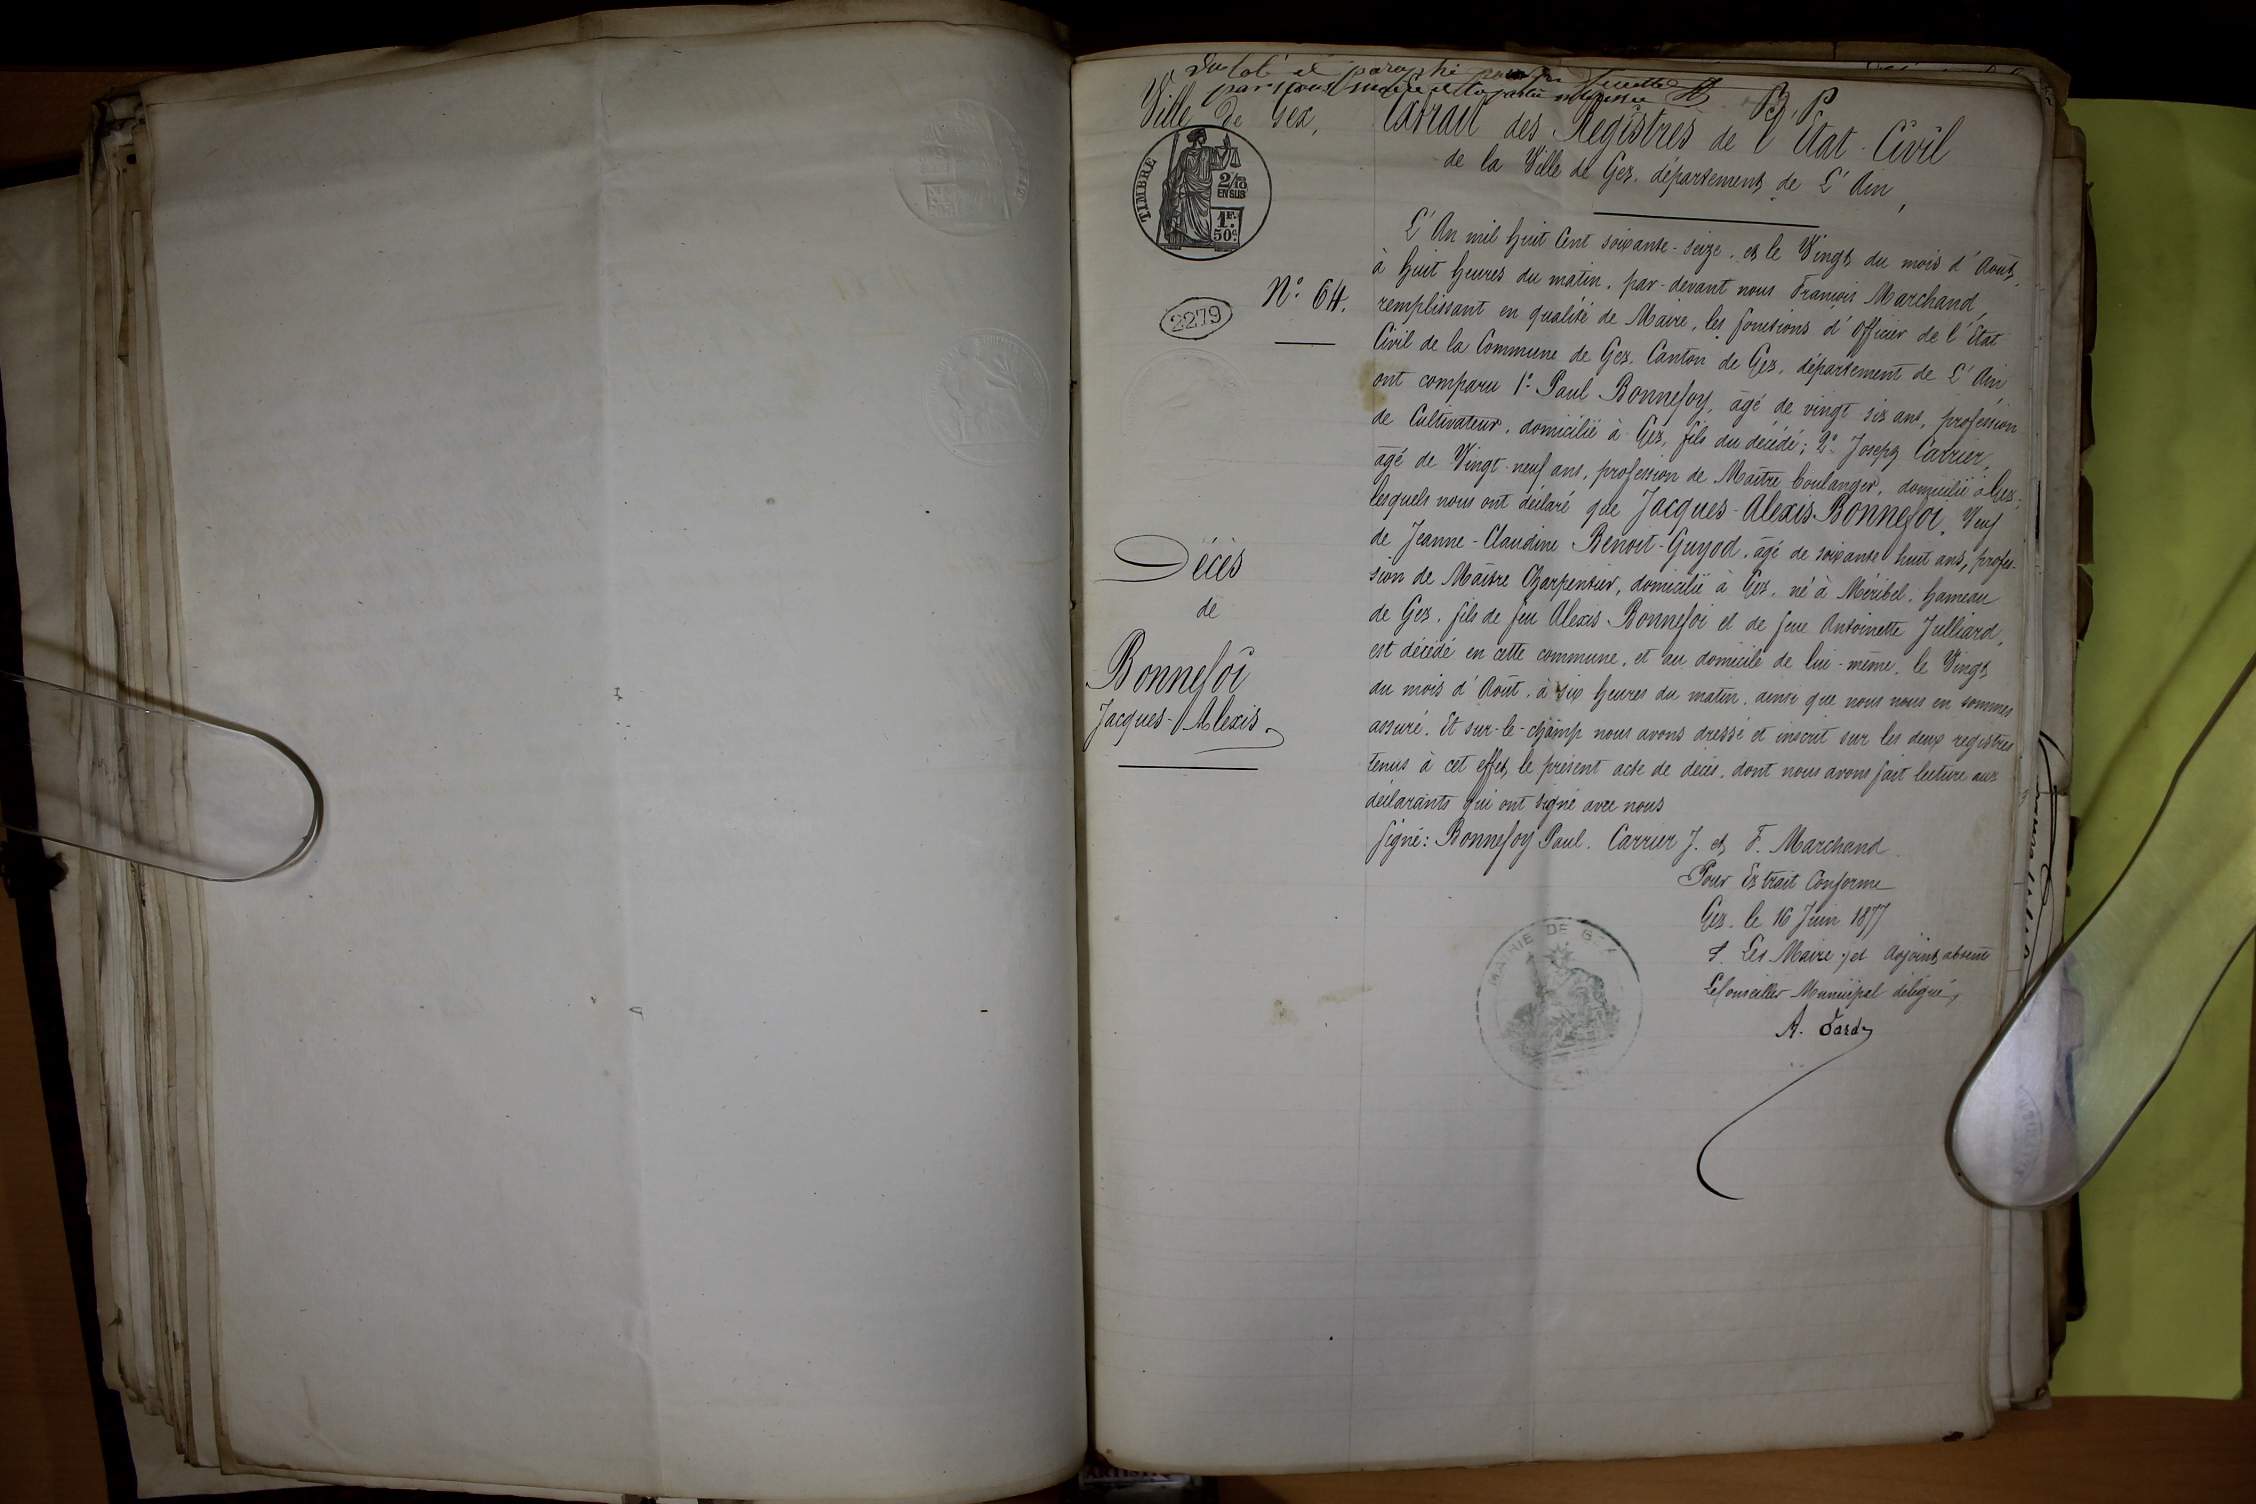 et paraphé
par nous maire et la partie
B. P
Ville de Gex,
Extrait des Registres de l'Etat-Civil
de la Ville de Gex. département de L'Ain,
TIMBRE
2/10
EN SUS
1F.
50c.
2279
N° 64.
L'An mil huit Cent soixante-seize. et le Vingt du mois d'Août,
à huit heures du matin. par-devant nous François Marchand,
remplissant en qualité de Maire, les fonctions d'Officier de l'Etat
Civil de la Commune de Gex. Canton de Gex, département de L'Ain
ont comparu 1° Paul Bonnefoy, agé de vingt six ans, profession
de Cultivateur, domicilié à Gex, fils du décédé; 2° Joseph Carrier,
agé de Vingt-neuf ans, profession de Maître boulanger, domicilié à Gex;
lesquels nous ont déclaré que Jacques-Alexis Bonnefoi, Veuf
de Jeanne-Claudine Benoit-Guyod, agé de soixante huit ans, profes-
sion de Maître Charpentier, domicilié à Gex, né à Méribel, hameau
de Gex, fils de feu Alexis Bonnefoi et de feue Antoinette Julliard,
est décédé en cette commune, et au domicile de lui-même, le Vingt
du mois d'Août, à six heures du matin, ainsi que nous nous en sommes
assuré. Et sur-le-champ nous avons dressé et inscrit sur les deux registres
tenus à cet effet, le présent acte de décès, dont nous avons fait lecture aux
déclarants qui ont signé avec nous
Signé: Bonnefoy Paul. Carrier J. et F. Marchand
Décès
de
Bonnefoi
Jacques-Alexis
Pour Extrait Conforme
Gex. le 16 Juin 1877
P. Les Maire et Adjoint absents
Le Conseiller Municipal délégué,
MAIRIE DE GEX